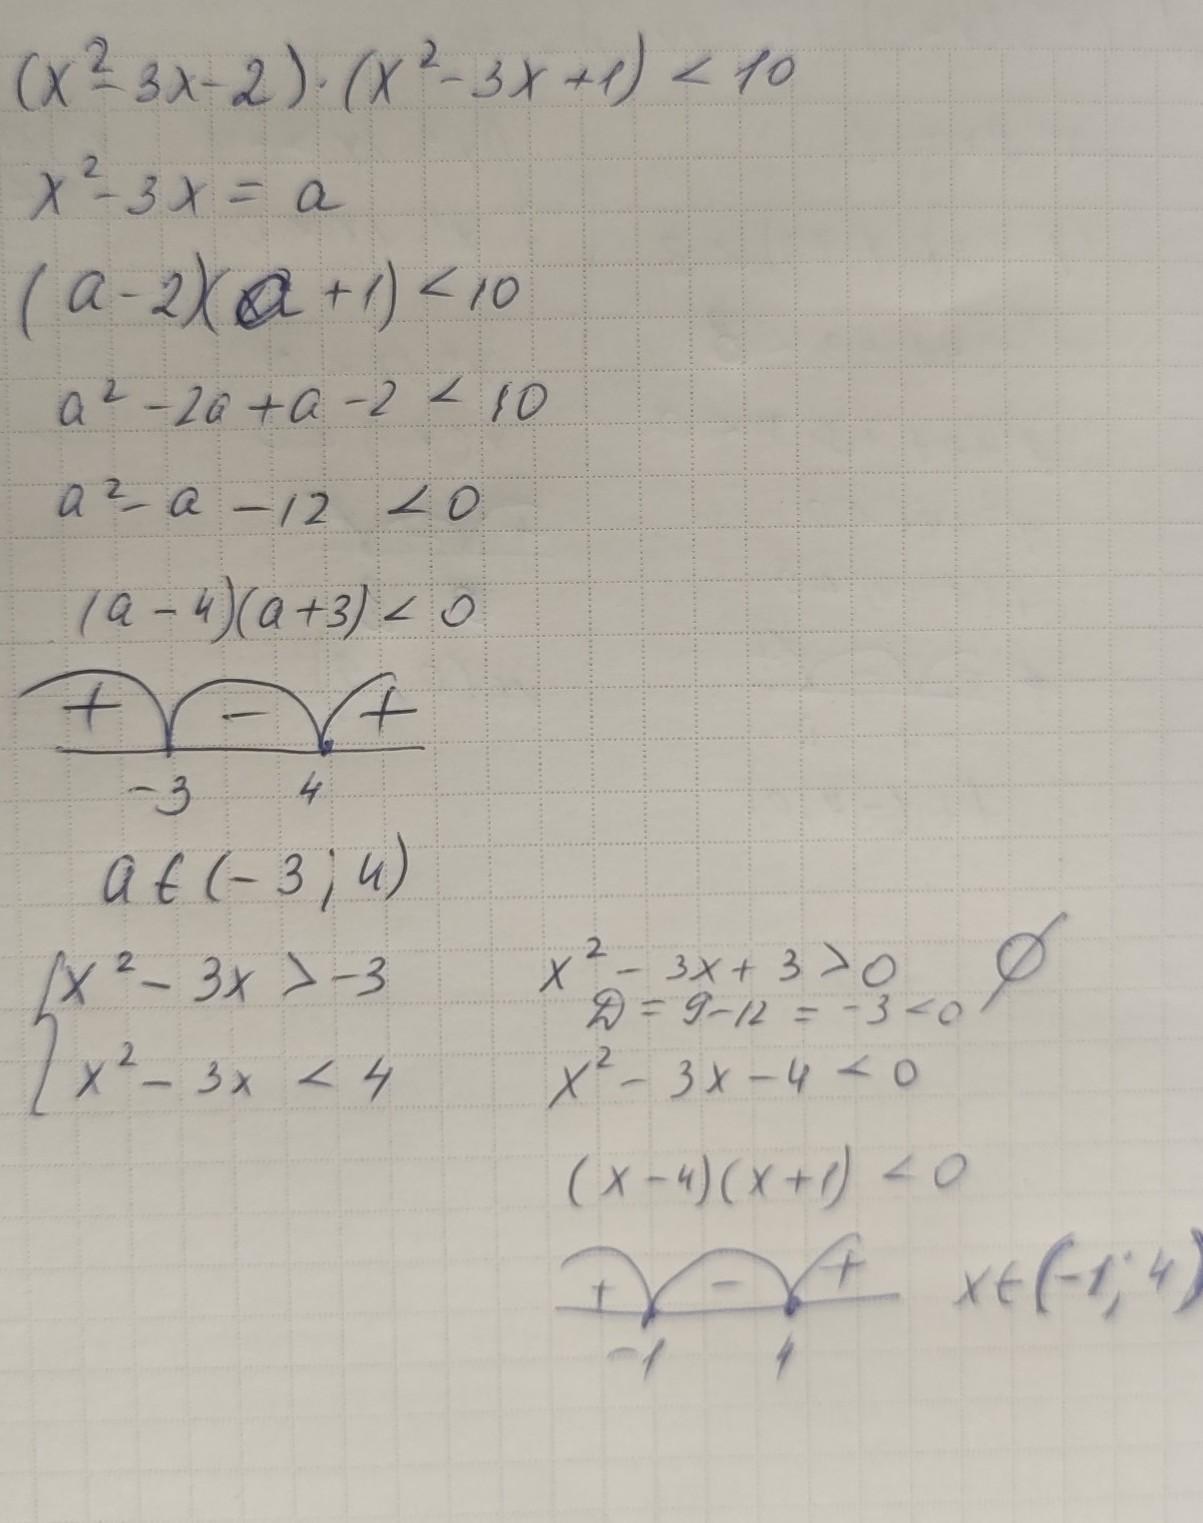 (x²-3x-2)·(x²-3x+1) < 10
x²-3x = a
(a-2)(a+1) < 10
a²-2a+a-2 < 10
a²-a-12 < 0
(a-4)(a+3) < 0
+ - +
-3 4
a ∈ (-3; 4)
{x²-3x > -3 x²-3x+3 > 0 ∅
D = 9-12 = -3 < 0
x²-3x < 4 x²-3x-4 < 0
(x-4)(x+1) < 0
+ - + x ∈ (-1; 4)
-1 4